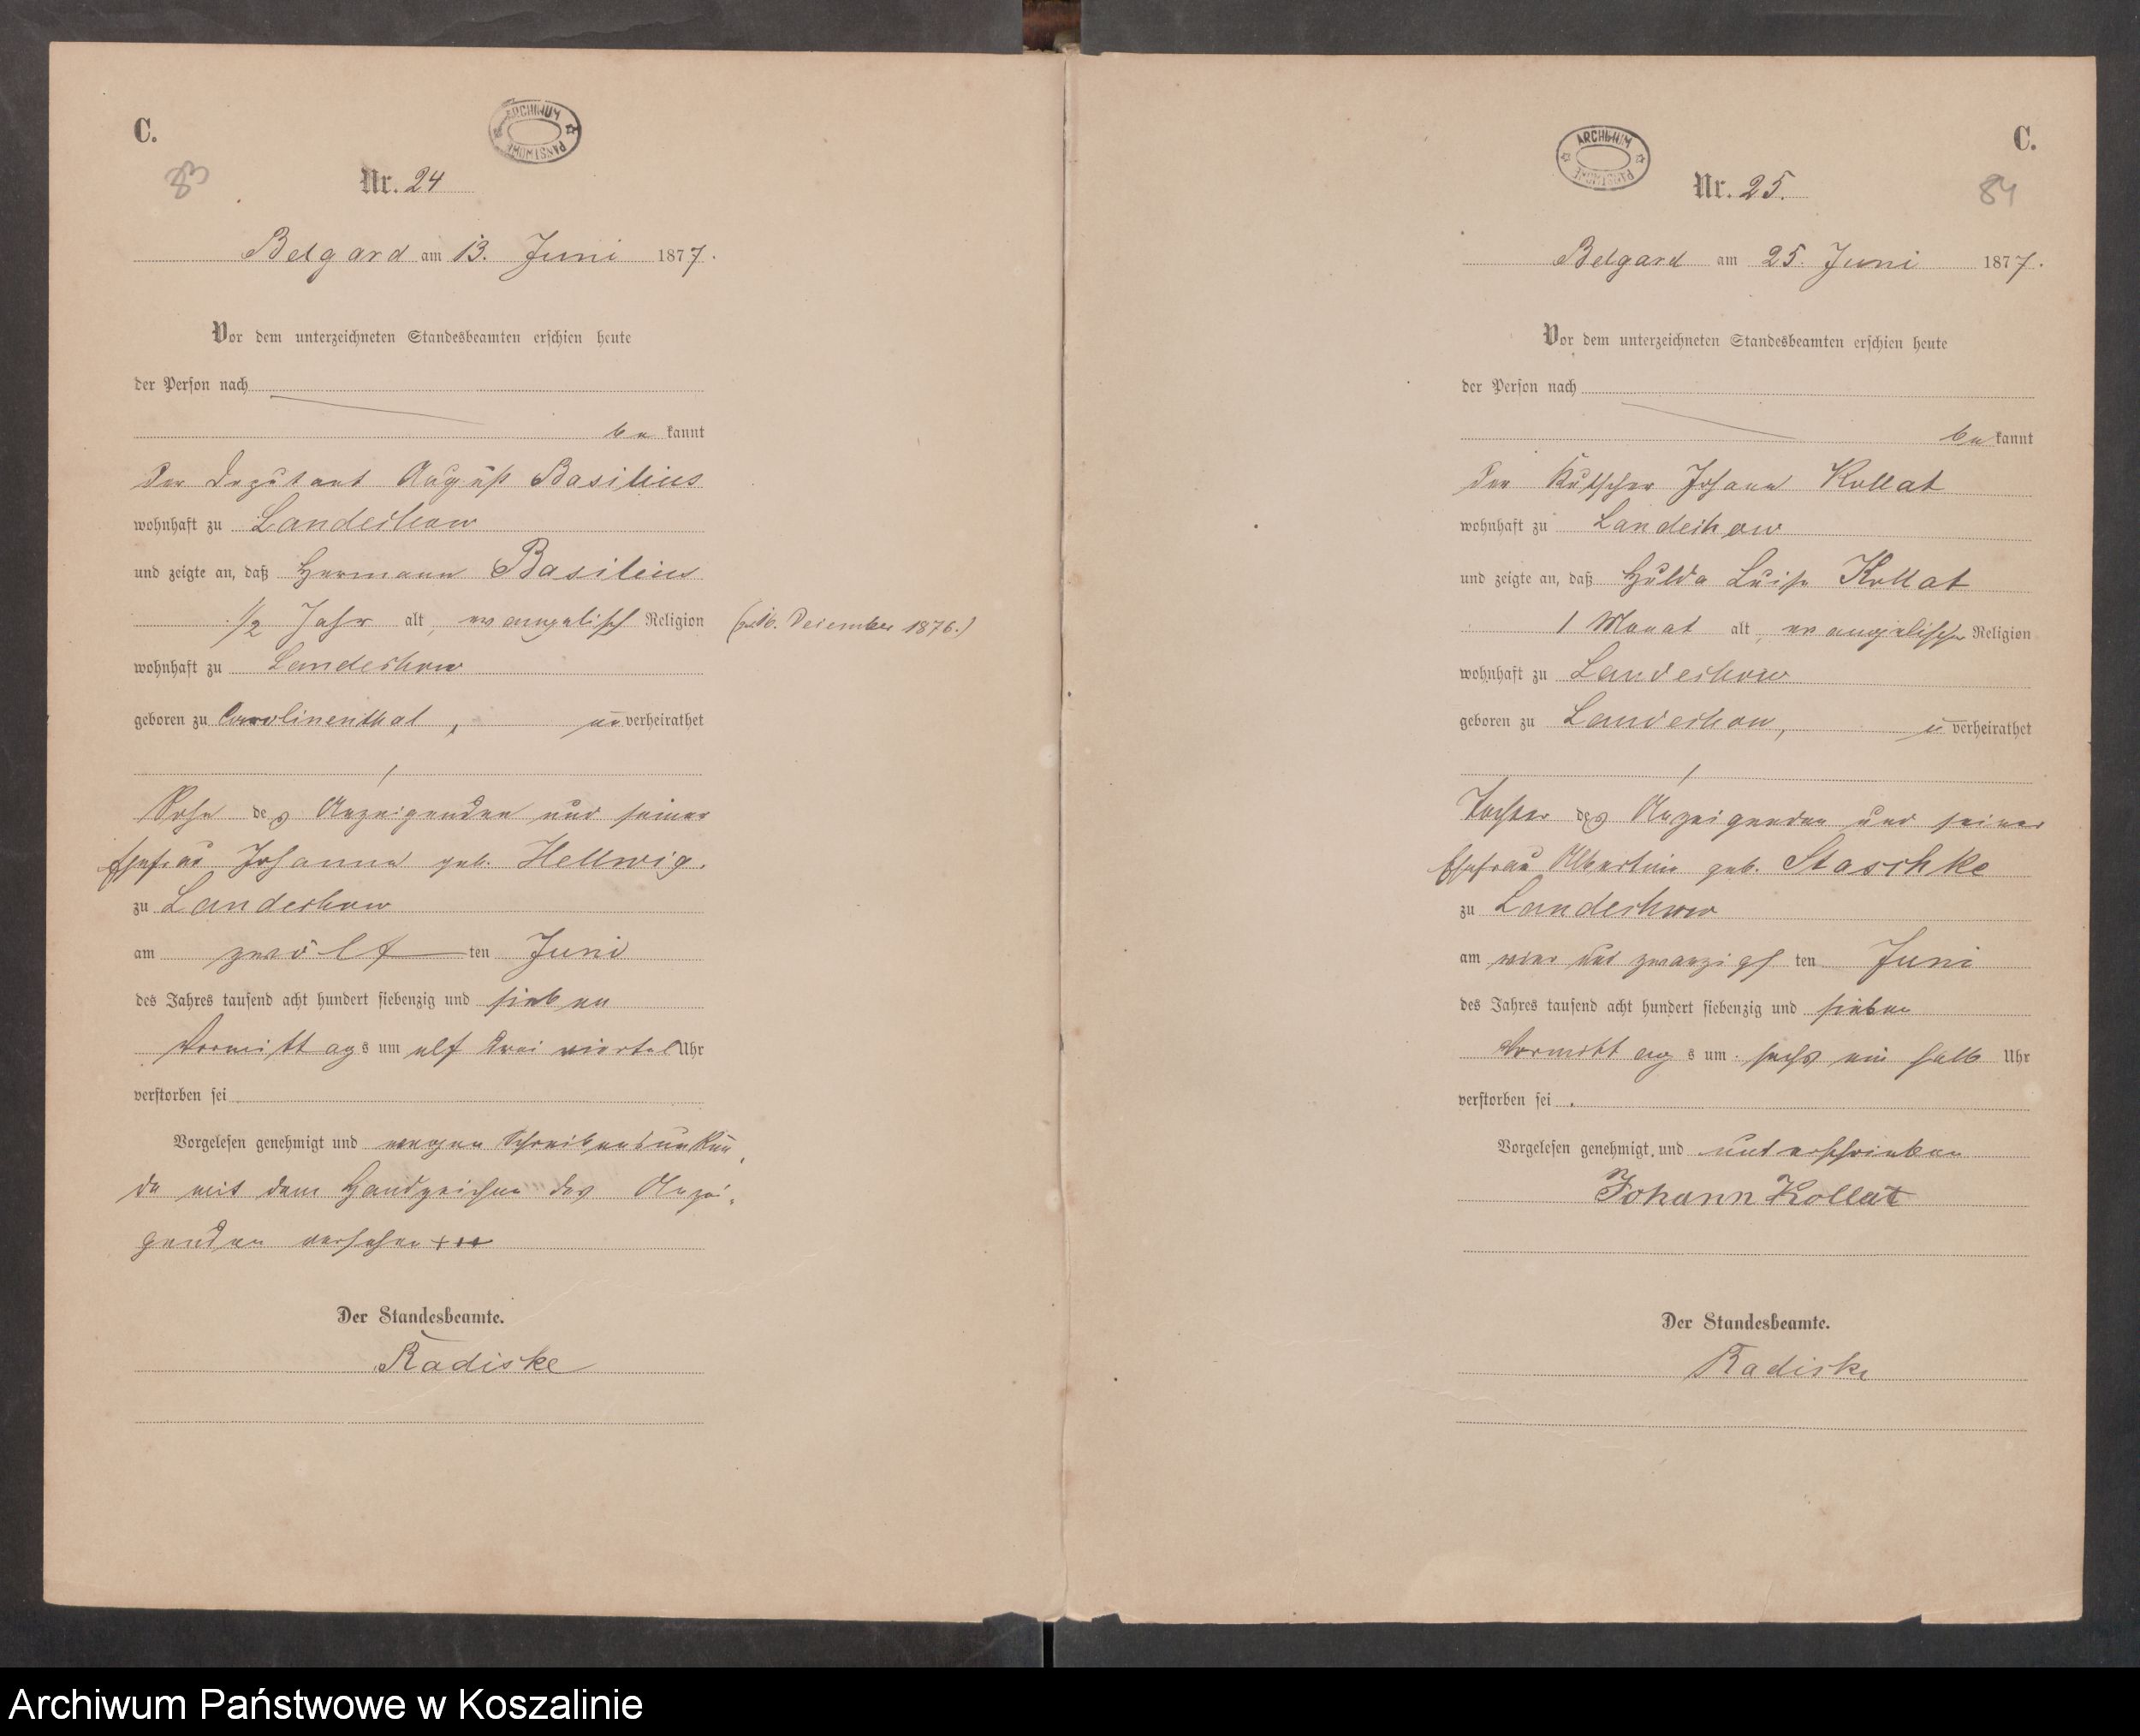 C.
ARCHIWUM PAŃSTWOWE
83
Nr. 24
Belgard am 13. Juni 1877.
Vor dem unterzeichneten Standesbeamten erschien heute
der Person nach
be kannt
der Deputant August Basilius
wohnhaft zu Landechow
und zeigte an, daß Hermann Basilius
1/2 Jahr alt, evangelisch Religion (16. Dezember 1876.)
wohnhaft zu Landechow
geboren zu Carolinenthal, un verheirathet
Sohn des Anzeigenden und seiner
Ehefrau Johanna geb. Hellwig.
zu Landechow
am zwölf ten Juni
des Jahres tausend acht hundert siebenzig und sieben
Vormittags um elf drei viertel Uhr
verstorben sei
Vorgelesen genehmigt und wegen Schreibensunkun
de mit dem Handzeichen des Anzei-
genden versehen +++
Der Standesbeamte.
Radiske
ARCHIWUM PAŃSTWOWE
C.
84
Nr. 25.
Belgard am 25. Juni 1877.
Vor dem unterzeichneten Standesbeamten erschien heute
der Person nach
be kannt
der Kutscher Johann Kollat
wohnhaft zu Landechow
und zeigte an, daß Hulda Luise Kollat
1 Monat alt, evangelischer Religion
wohnhaft zu Landechow
geboren zu Landechow, u verheirathet
Tochter des Anzeigenden und seiner
Ehefrau Albertine geb. Staschke
zu Landechow
am vier und zwanzigs ten Juni
des Jahres tausend acht hundert siebenzig und sieben
Vormittags um sechs ein halb Uhr
verstorben sei.
Vorgelesen genehmigt und unterschrieben
Johann Kollat
Der Standesbeamte.
Radiske
Archiwum Państwowe w Koszalinie